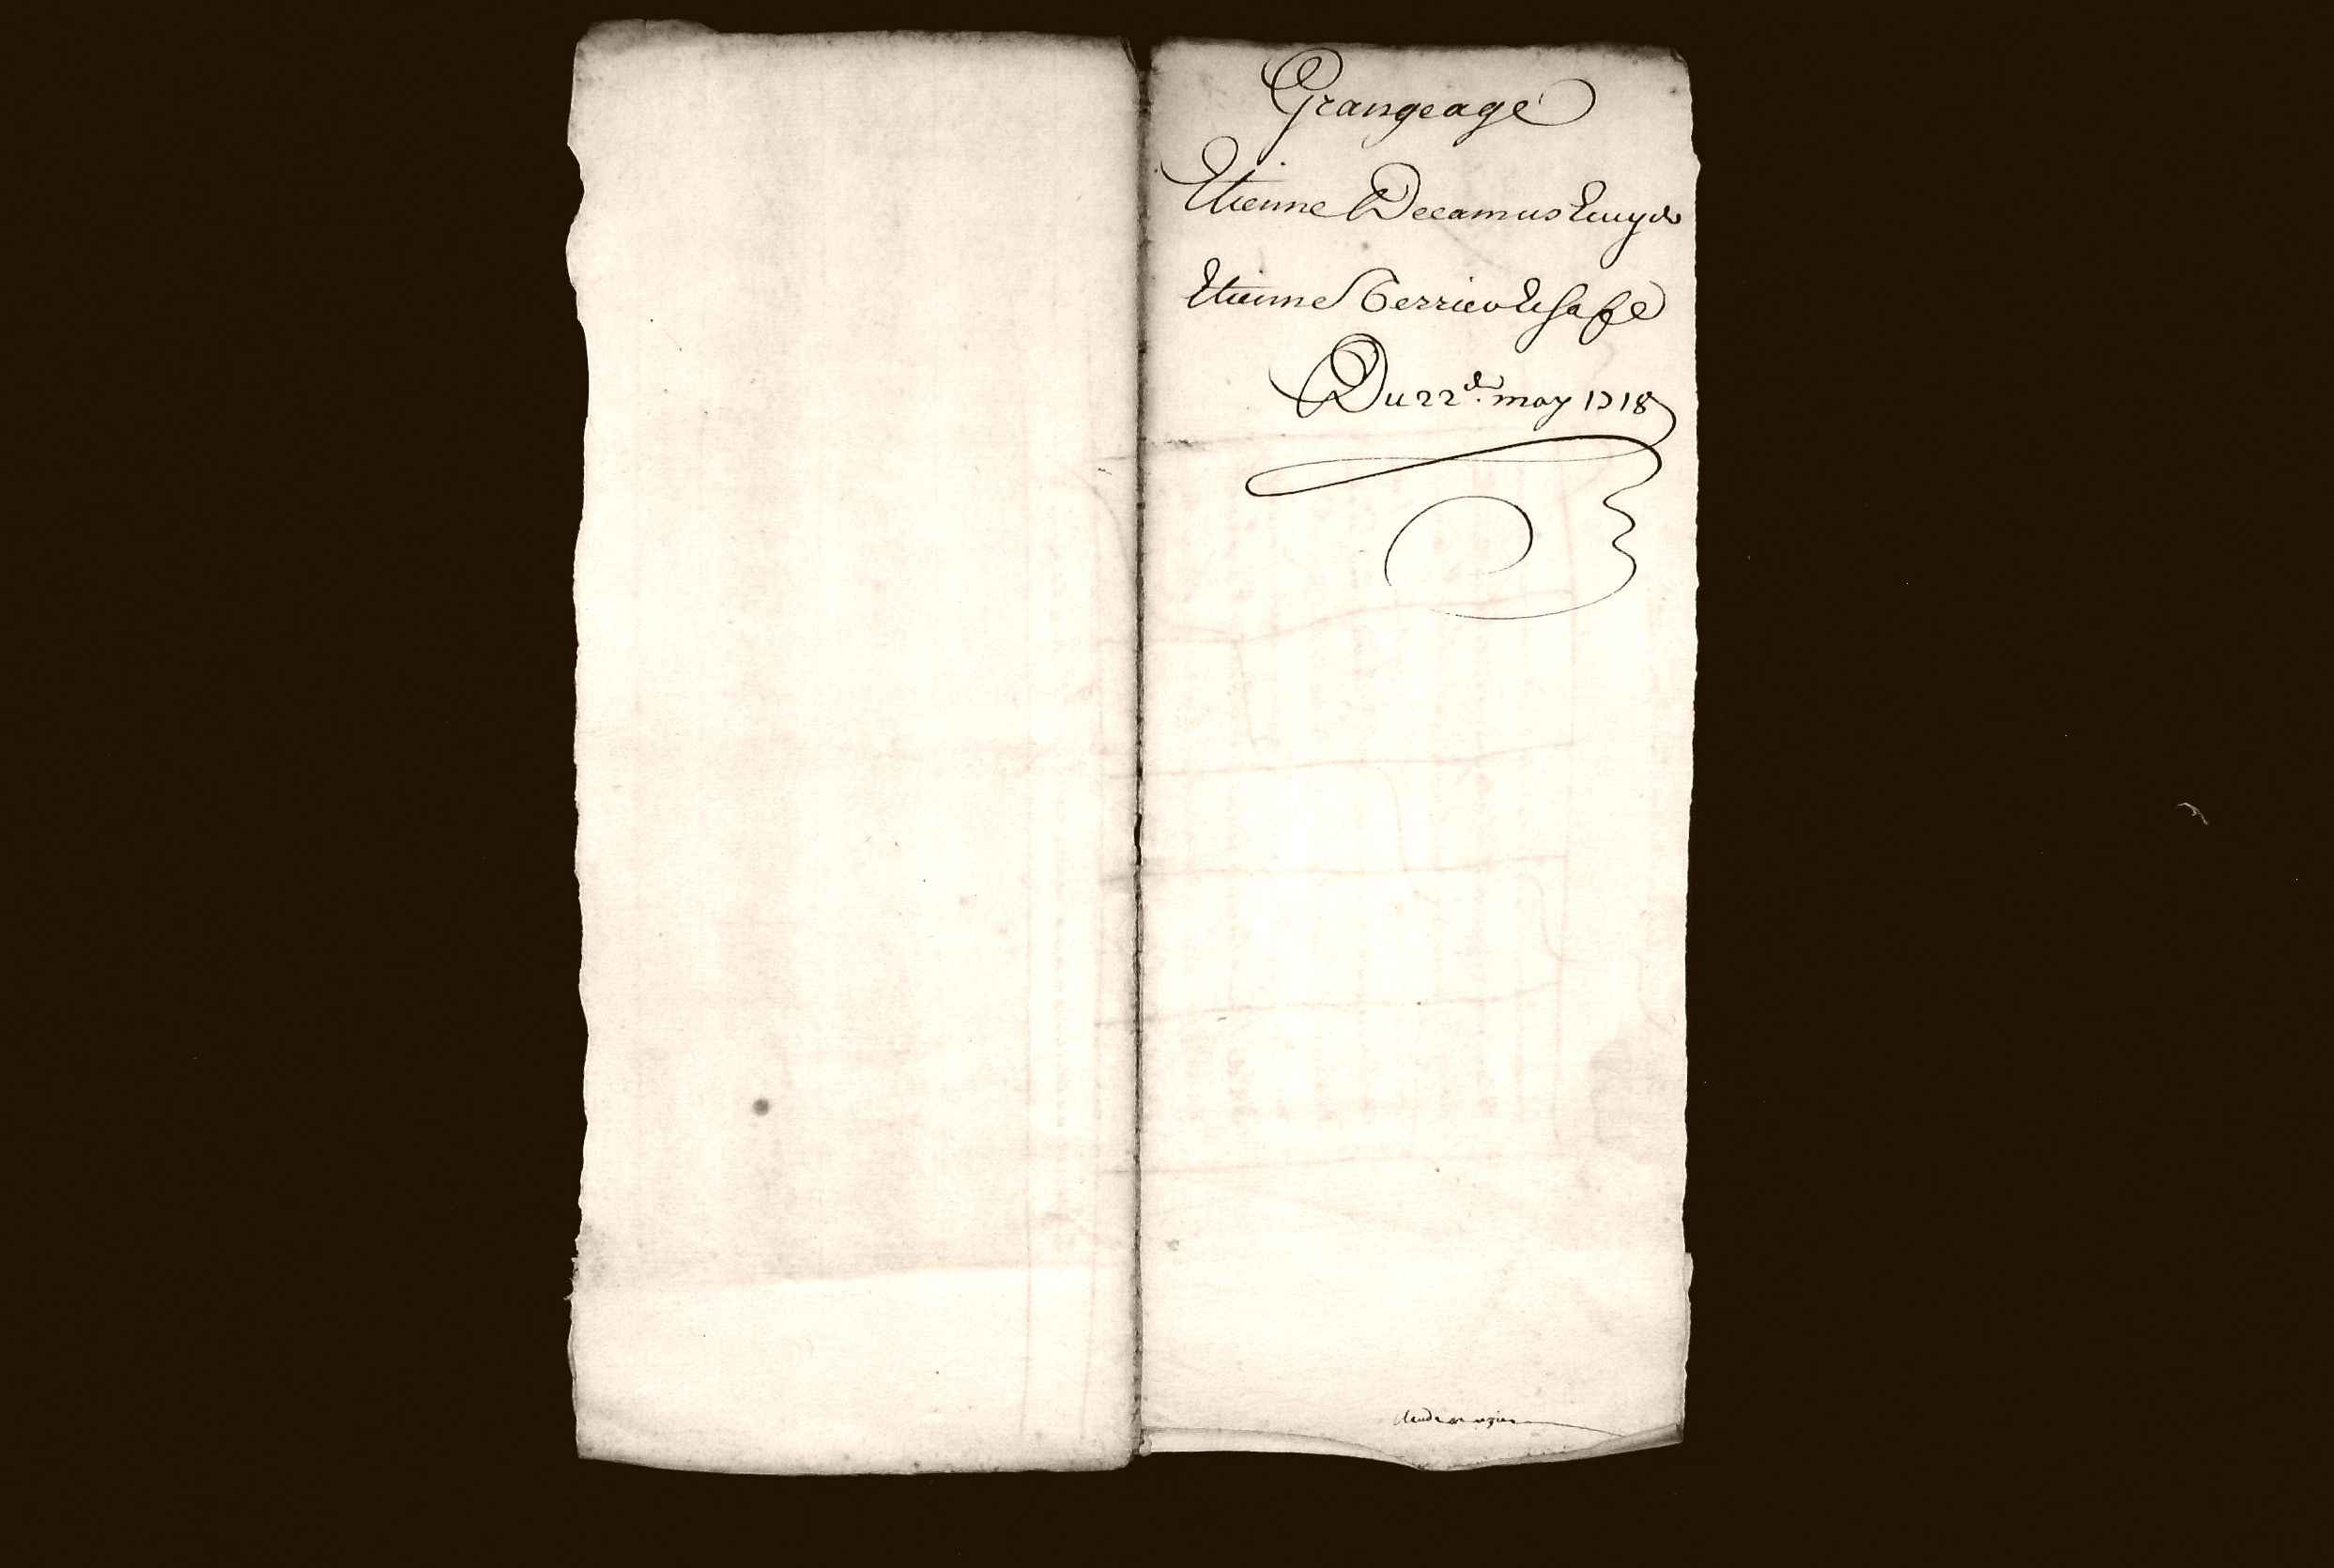 Grangeage
Etienne Decamus Ecuyer
Etienne Terrier et sa fe
Du 22e. may 1718